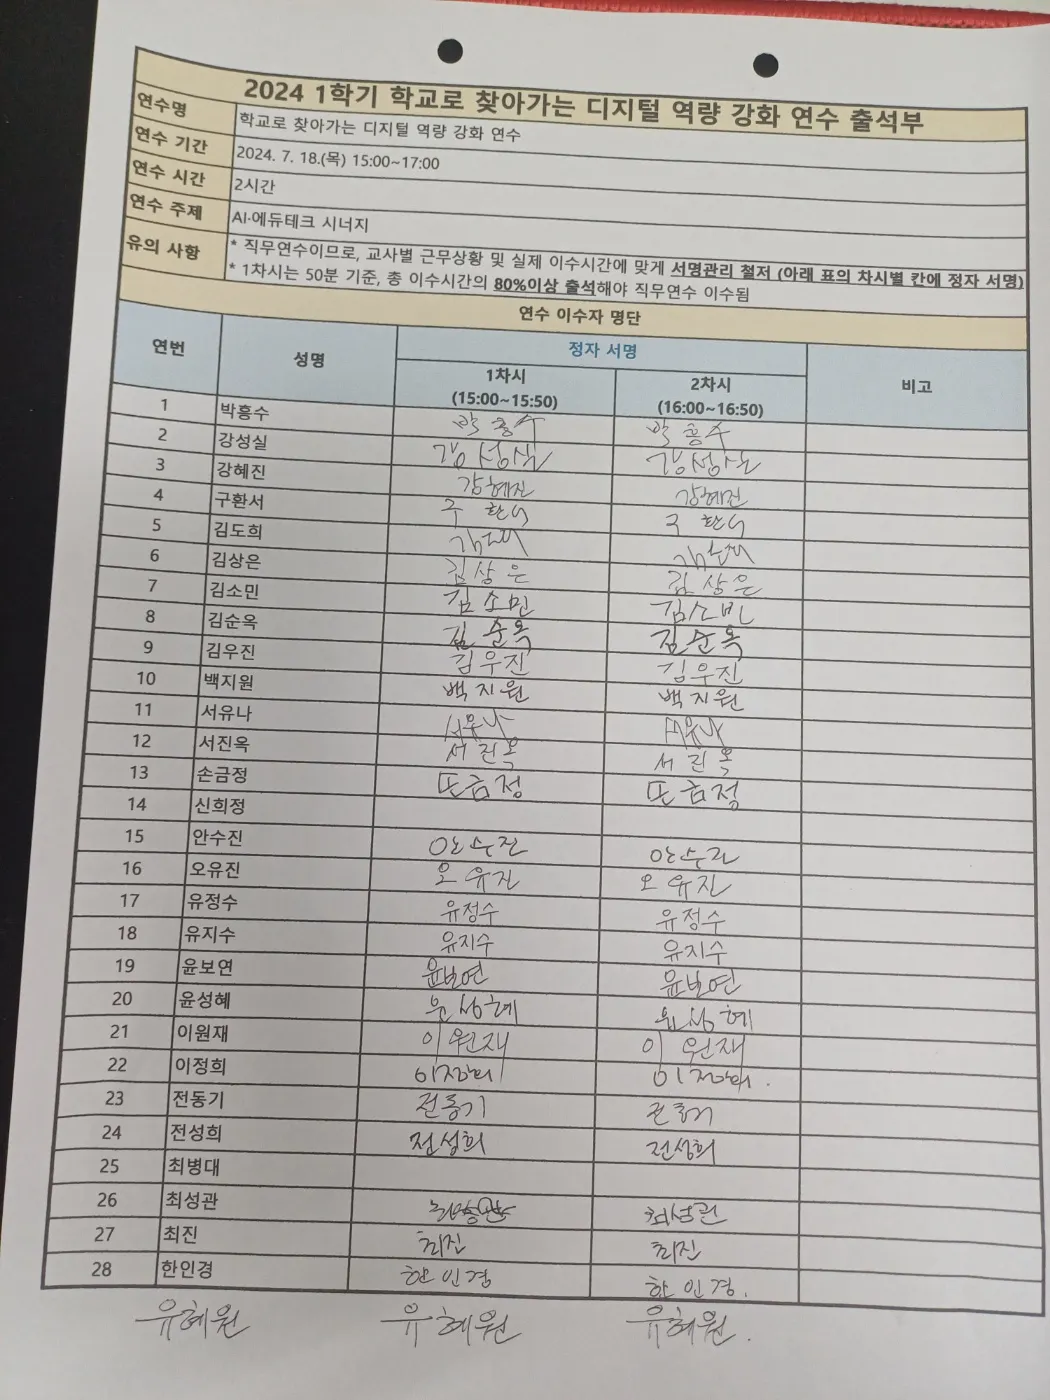 2024 1학기 학교로 찾아가는 디지털 역량 강화 연수 출석부
연수명 학교로 찾아가는 디지털 역량 강화 연수
연수 기간 2024. 7. 18.(목) 15:00~17:00
연수 시간 2시간
연수 주제 AI·에듀테크 시너지
유의 사항 * 직무연수이므로, 교사별 근무상황 및 실제 이수시간에 맞게 서명관리 철저 (아래 표의 차시별 칸에 정자 서명)
* 1차시는 50분 기준, 총 이수시간의 80%이상 출석해야 직무연수 이수됨
연수 이수자 명단
연번 성명 정자 서명 비고
1차시 2차시
(15:00~15:50) (16:00~16:50)
1 박흥수 박흥수 박흥수
2 강성실 강성실 강성실
3 강혜진 강혜진 강혜진
4 구환서 구환서 구환서
5 김도희 김도희 김도희
6 김상은 김상은 김상은
7 김소민 김소민 김소민
8 김순옥 김순옥 김순옥
9 김우진 김우진 김우진
10 백지원 백지원 백지원
11 서유나 서유나 서유나
12 서진옥 서진옥 서진옥
13 손금정 손금정 손금정
14 신희정
15 안수진 안수진 안수진
16 오유진 오유진 오유진
17 유정수 유정수 유정수
18 유지수 유지수 유지수
19 윤보연 윤보연 윤보연
20 윤성혜 윤성혜 윤성혜
21 이원재 이원재 이원재
22 이정희 이정희 이정희.
23 전동기 전동기 전동기
24 전성희 전성희 전성희
25 최병대
26 최성관 최성관 최성관
27 최진 최진 최진
28 한인경 한인경 한인경.
유혜원 유혜원 유혜원.